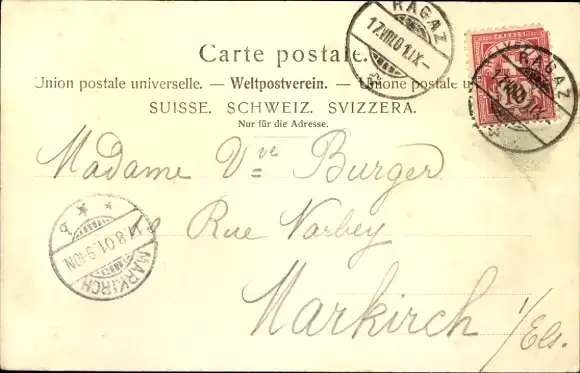 RAGAZ
17.VIII.01.IX-
Carte postale.
Union postale universelle. — Weltpostverein. — Unione postale u
SUISSE. SCHWEIZ. SVIZZERA.
Nur für die Adresse.
RAGAZ
10
Madame Vve Burger
Rue Narbey
Markirch i/Els.
MARKIRCH
8.01. 9-10N
b